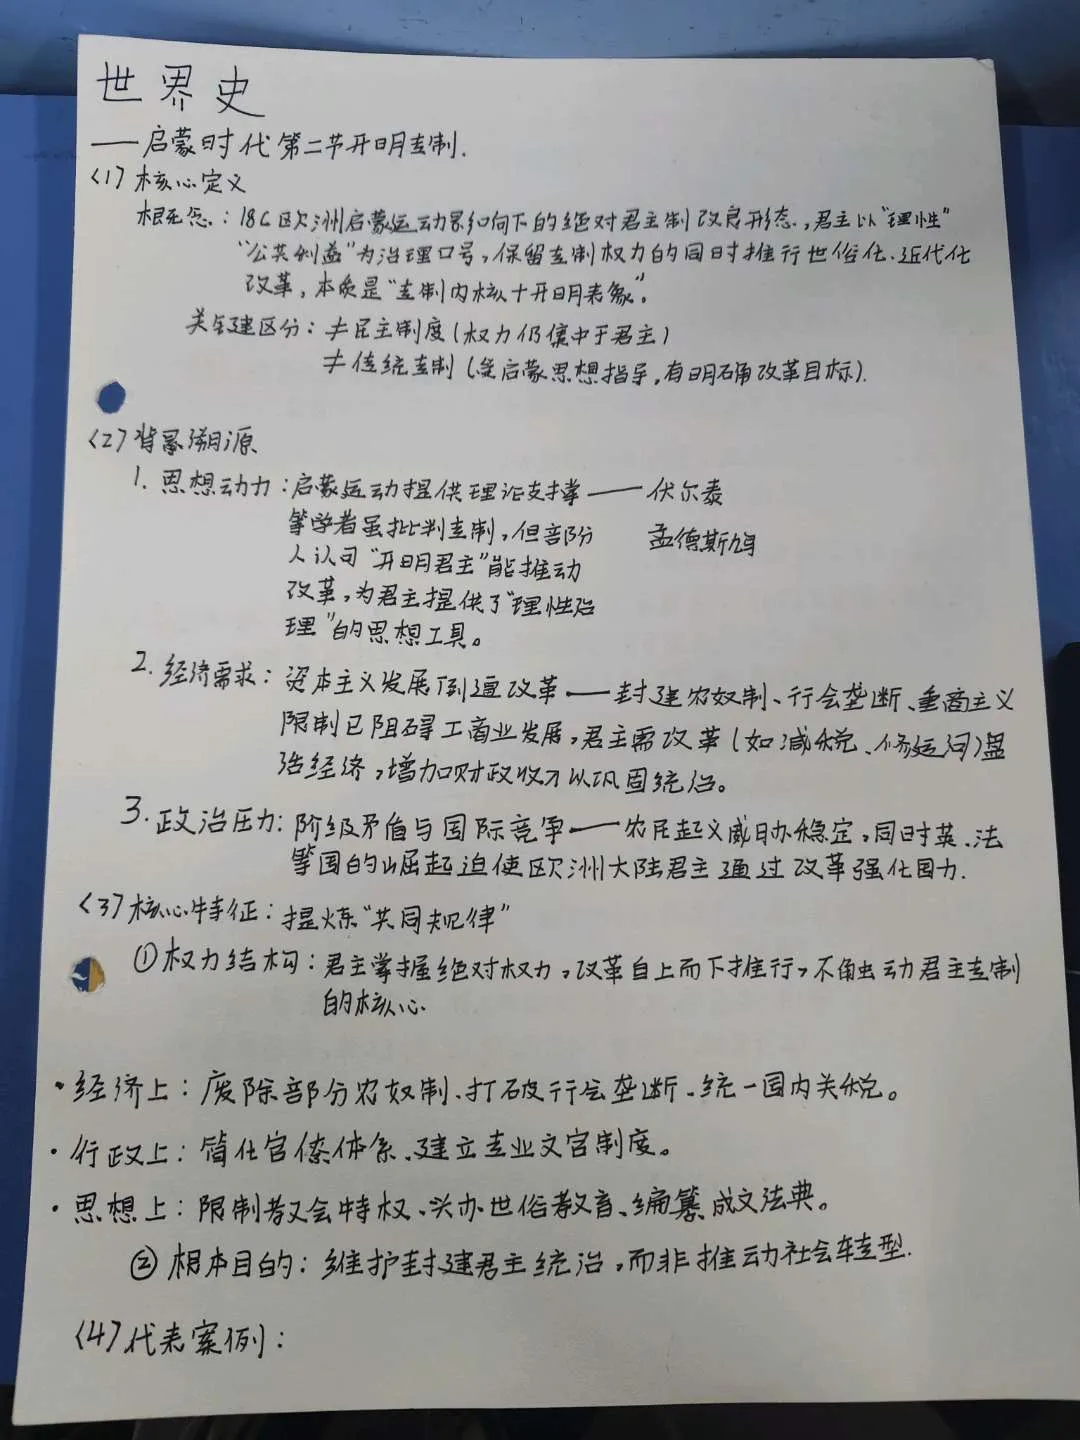 世界史
——启蒙时代第二节开明专制.
<1>核心定义
概念：18C欧洲启蒙运动影响下的绝对君主制改良形态，君主以“理性”
“公共利益”为治理口号，保留专制权力的同时推行世俗化、近代化
改革，本质是“专制内核+开明表象”。
关键区分：≠民主制度(权力仍集中于君主)
≠传统专制(受启蒙思想指导，有明确改革目标).
<2>背景溯源
1. 思想动力：启蒙运动提供理论支撑——伏尔泰
等学者虽批判专制，但部份 孟德斯鸠
人认可“开明君主”能推动
改革，为君主提供了“理性治
理”的思想工具。
2. 经济需求：资本主义发展倒逼改革——封建农奴制、行会垄断、重商主义
限制已阻碍工商业发展，君主需改革(如减税、修运河)盘
活经济，增加财政收入以巩固统治。
3. 政治压力：阶级矛盾与国际竞争——农民起义威胁稳定，同时英、法
等国的崛起迫使欧洲大陆君主通过改革强化国力.
<3>核心特征：提炼“共同规律”
①权力结构：君主掌握绝对权力，改革自上而下推行，不触动君主专制
的核心
·经济上：废除部分农奴制、打破行会垄断、统一国内关税。
·行政上：简化官僚体系、建立专业文官制度。
·思想上：限制教会特权、兴办世俗教育、编纂成文法典。
②根本目的：维护封建君主统治，而非推动社会转型.
<4>代表案例：